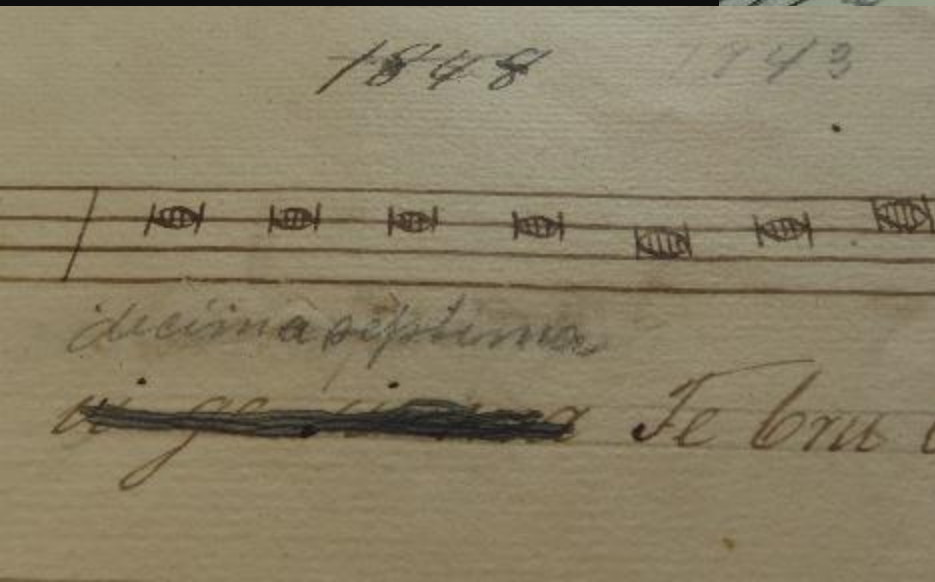 1848 1843
decima septima
vi ge si ma Fe bru